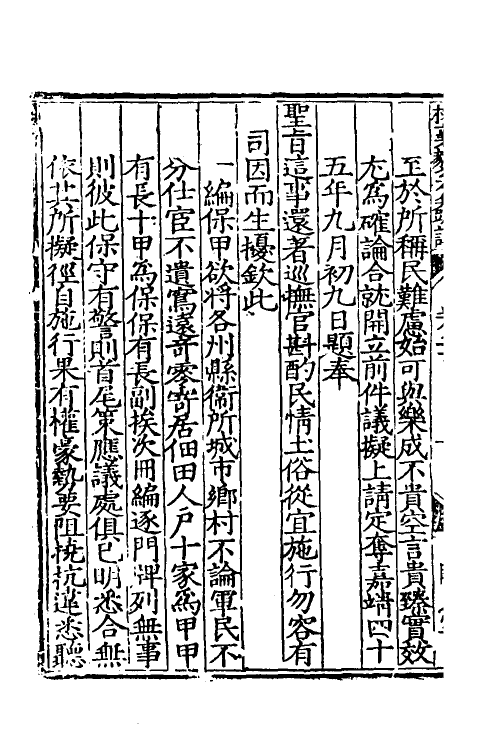 至於所稱民難慮始可與樂成不貴空言貴臻實效
尤為確論合就開立前件議擬上請定奪嘉靖四十
五年九月初九日題奉
聖旨這事還著巡撫官斟酌民情土俗從宜施行勿容有
司因而生擾欽此
一編保甲欲將各州縣衞所城市鄉村不論軍民不
分仕宦不遺寫遠奇零寄居佃田人戶十家為甲甲
有長十甲為保保有長副挨次冊編逐門牌列無事
則彼此保守有警則首尾策應議處俱已明悉合無
依其所擬徑自施行果有權豪勢要阻撓抗違悉聽